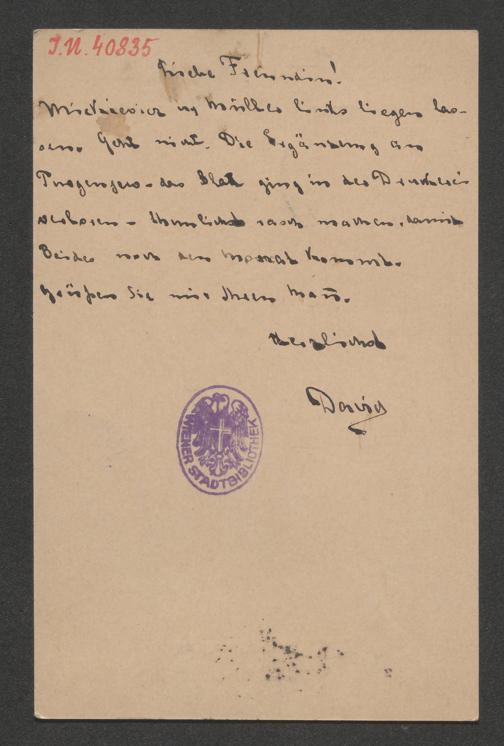 I.N. 40835
Liebe Freundin!
Mickiewicz u Müller links liegen las-
sen. Geht nicht. Die Ergänzung an
das Blatt ging in der Druckerei
verloren - thunlichst rasch machen, damit
Beides noch den Monat kommt.
Grüßen Sie mir Ihren Mañ.
Herzlichst
David
WIENER STADTBIBLIOTHEK